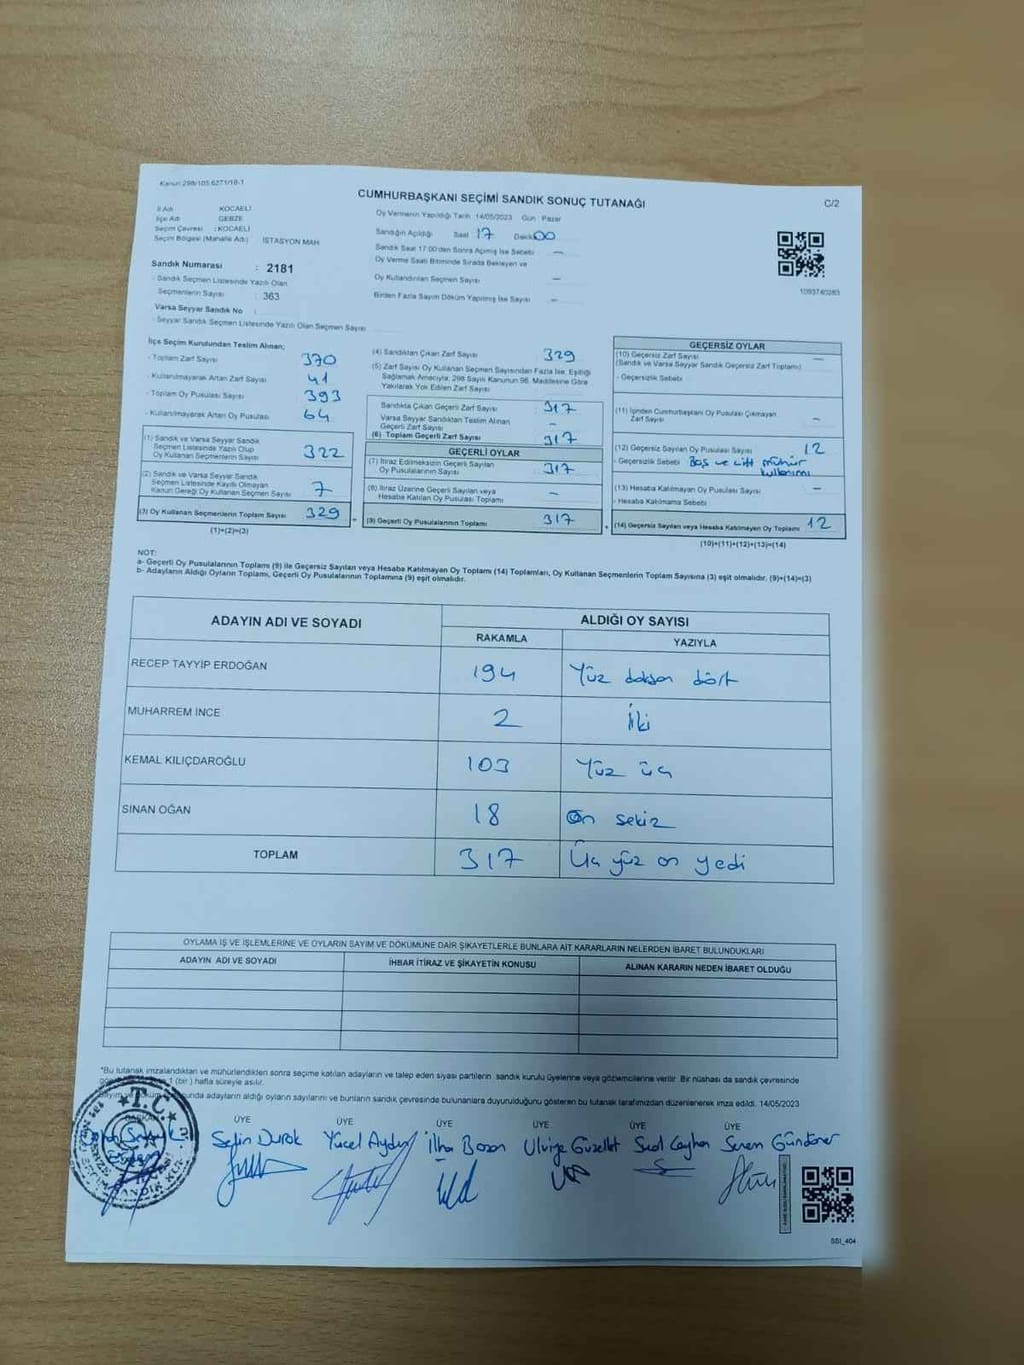 Kanun 298/105,6271/18-1
CUMHURBAŞKANI SEÇİMİ SANDIK SONUÇ TUTANAĞI
C/2
İl Adı : KOCAELİ
İlçe Adı : GEBZE
Seçim Çevresi : KOCAELİ
Seçim Bölgesi (Mahalle Adı) : İSTASYON MAH
Sandık Numarası : 2181
Sandık Seçmen Listesinde Yazılı Olan
Seçmenlerin Sayısı : 363
Varsa Seyyar Sandık No :
Seyyar Sandık Seçmen Listesinde Yazılı Olan Seçmen Sayısı
Oy Vermenin Yapıldığı Tarih : 14/05/2023 Gün : Pazar
Sandığın Açıldığı Saat 17 Dakika 00
Sandık Saat 17:00'den Sonra Açılmış İse Sebebi —
Oy Verme Saati Bitiminde Sırada Bekleyen ve
Oy Kullandırılan Seçmen Sayısı —
Birden Fazla Sayım Döküm Yapılmış İse Sayısı —
1093740283
İlçe Seçim Kurulundan Teslim Alınan;
- Toplam Zarf Sayısı 370
- Kullanılmayarak Artan Zarf Sayısı 41
- Toplam Oy Pusulası Sayısı 393
- Kullanılmayarak Artan Oy Pusulası 64
(1) Sandık ve Varsa Seyyar Sandık
Seçmen Listesinde Yazılı Olup
Oy Kullanan Seçmenlerin Sayısı 322
(2) Sandık ve Varsa Seyyar Sandık
Seçmen Listesinde Kayıtlı Olmayan
Kanun Gereği Oy Kullanan Seçmen Sayısı 7
(3) Oy Kullanan Seçmenlerin Toplam Sayısı 329
(1)+(2)=(3)
(4) Sandıktan Çıkan Zarf Sayısı 329
(5) Zarf Sayısı Oy Kullanan Seçmen Sayısından Fazla İse, Eşitliği
Sağlamak Amacıyla, 298 Sayılı Kanunun 98. Maddesine Göre
Yakılarak Yok Edilen Zarf Sayısı
Sandıkta Çıkan Geçerli Zarf Sayısı 317
Varsa Seyyar Sandıktan Teslim Alınan
Geçerli Zarf Sayısı —
(6) Toplam Geçerli Zarf Sayısı 317
GEÇERLİ OYLAR
(7) İtiraz Edilmeksizin Geçerli Sayılan
Oy Pusulalarının Sayısı 317
(8) İtiraz Üzerine Geçerli Sayılan veya
Hesaba Katılan Oy Pusulası Toplamı —
(9) Geçerli Oy Pusulalarının Toplamı 317
GEÇERSİZ OYLAR
(10) Geçersiz Zarf Sayısı —
(Sandık ve Varsa Seyyar Sandık Geçersiz Zarf Toplamı)
- Geçersizlik Sebebi
(11) İçinden Cumhurbaşkanı Oy Pusulası Çıkmayan
Zarf Sayısı —
(12) Geçersiz Sayılan Oy Pusulası Sayısı 12
- Geçersizlik Sebebi Boş ve çift mühür
kullanımı
(13) Hesaba Katılmayan Oy Pusulası Sayısı —
- Hesaba Katılmama Sebebi
(14) Geçersiz Sayılan veya Hesaba Katılmayan Oy Toplamı 12
(10)+(11)+(12)+(13)=(14)
NOT:
a- Geçerli Oy Pusulalarının Toplamı (9) ile Geçersiz Sayılan veya Hesaba Katılmayan Oy Toplamı (14) Toplamları, Oy Kullanan Seçmenlerin Toplam Sayısına (3) eşit olmalıdır. (9)+(14)=(3)
b- Adayların Aldığı Oyların Toplamı, Geçerli Oy Pusulalarının Toplamına (9) eşit olmalıdır.
ADAYIN ADI VE SOYADI
ALDIĞI OY SAYISI
RAKAMLA YAZIYLA
RECEP TAYYİP ERDOĞAN 194 Yüz doksan dört
MUHARREM İNCE 2 İki
KEMAL KILIÇDAROĞLU 103 Yüz üç
SİNAN OĞAN 18 On sekiz
TOPLAM 317 Üç yüz on yedi
OYLAMA İŞ VE İŞLEMLERİNE VE OYLARIN SAYIM VE DÖKÜMÜNE DAİR ŞİKAYETLERLE BUNLARA AİT KARARLARIN NELERDEN İBARET BULUNDUKLARI
ADAYIN ADI VE SOYADI İHBAR İTİRAZ VE ŞİKAYETİN KONUSU ALINAN KARARIN NEDEN İBARET OLDUĞU
"Bu tutanak imzalandıktan ve mühürlendikten sonra seçime katılan adayların ve talep eden siyasi partilerin sandık kurulu üyelerine veya gözlemcilerine verilir. Bir nüshası da sandık çevresinde
1 (bir) hafta süreyle asılır.
adayların aldığı oyların sayılarını ve bunların sandık çevresinde bulunanlara duyurulduğunu gösteren bu tutanak tarafımızdan düzenlenerek imza edildi. 14/05/2023
ÜYE ÜYE ÜYE ÜYE ÜYE ÜYE
Selin Durak Yücel Aydın İlha Bozan Ulviye Güzellet Sud Ceyhan Senem Gündoner
T.C.
SSI_404